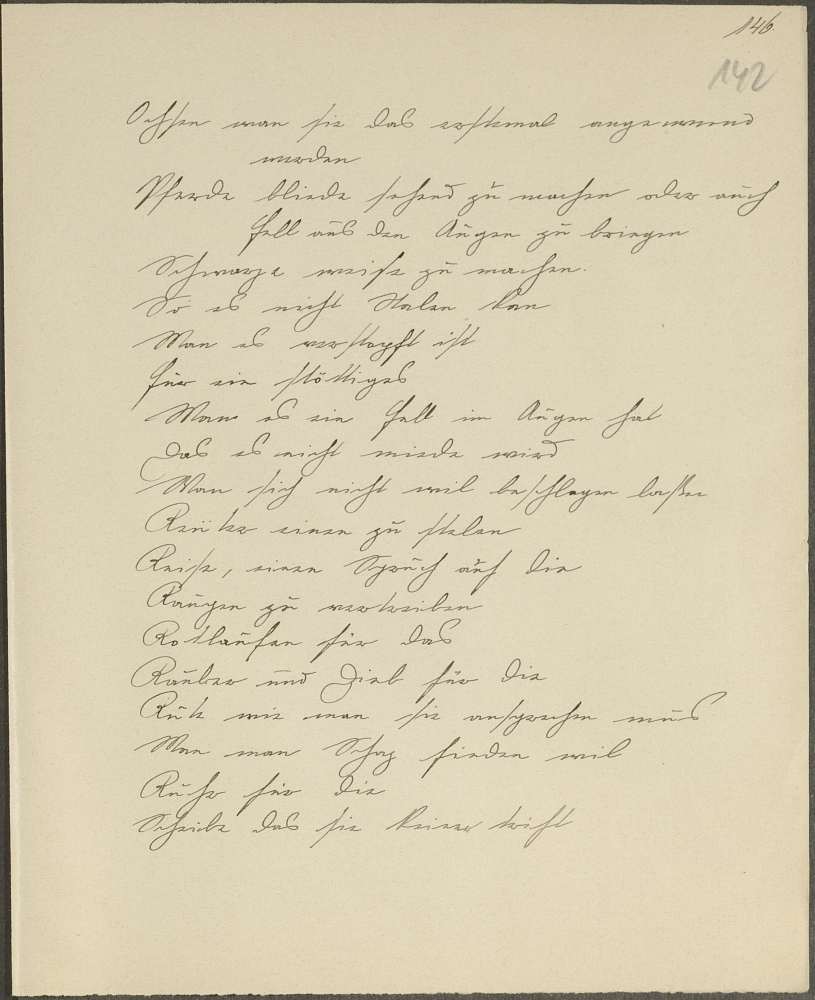 146
142
Ochsen wan sie das erstemal angewennd
werden
Pferde bliede sehend zu machen oder auch
fell aus den Augen zu briegen
Schwarze weise zu machen.
So es nicht Stalen kan
Wan es verstopft ist
für ein stöttiges
Wan es ein fell im Augen hat
Das es nicht miede wird
Wan sich nicht wil beschlagen laßen
Reuter einen zu stelen
Reise, einen Spruch auf die
Raupen zu vertreiben
Rotlaufen für das
Rauber und Dieb für die
Rute wie man sie ansprechen mus
Wen man Schaz fieden wil
Ruhr für die
Scheibe das sie keiner trift